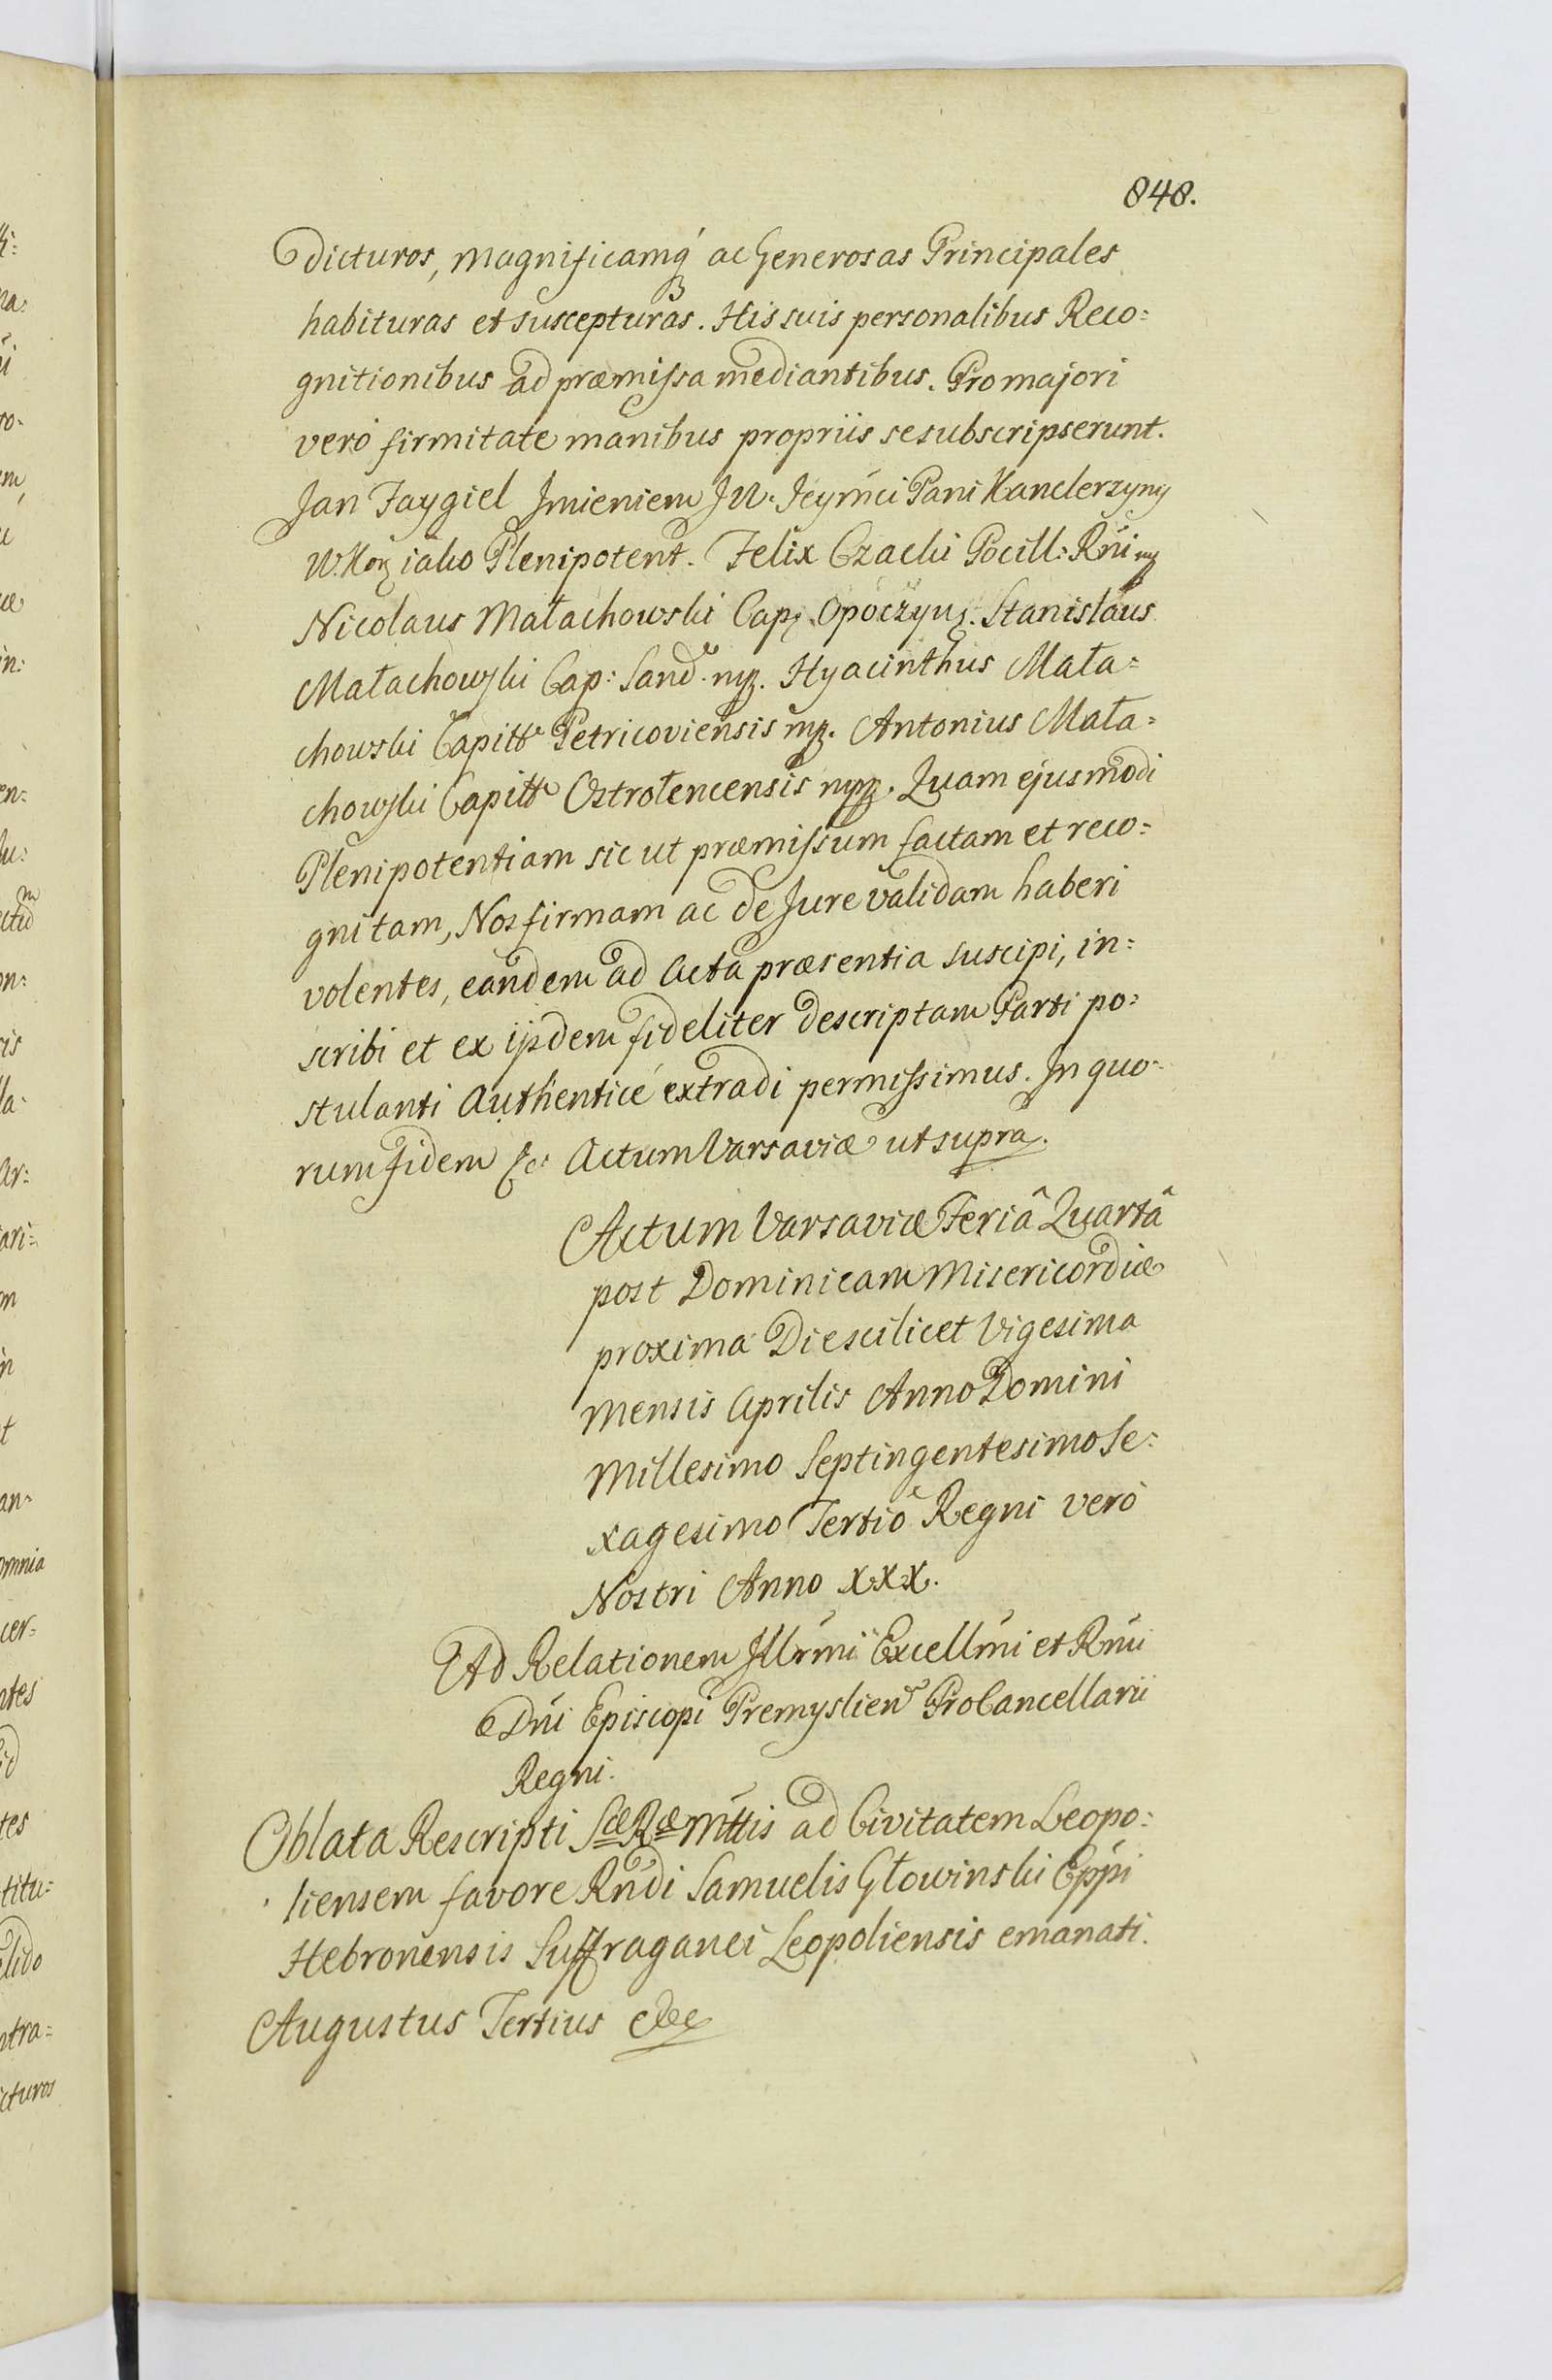 848.
Dicturos, Magnificamq́ ac Generosas Principales
habituras et suscepturas. His suis personalibus Reco=
gnitionibus ad præmissa mediantibus. Pro majori
veró firmitate manibus propriis se subscripserunt.
Jan Faygiel Jmieniem JW. Jeymci Pani Kanclerzyny
W. Kor iako Plenipotent. Felix Czacki Pocill: Rńi mp
Nicolaus Małachowski Cap. Opoczyn. Stanislaus
Małachowski Cap: Sand. mp. Hyacinthus Mała=
chowski Capitt Petricoviensis mp. Antonius Mała=
chowski Capitt Ostrołencensis mpp. Quam ejusmodi
Plenipotentiam sic ut præmissum factam et reco=
gnitam, Nos firmam ac de Jure validam haberi
volentes, eandem ad Acta præsentia suscipi, in=
scribi et ex ijsdem fideliter descriptam Parti po=
stulanti Authenticé extradi permissimus. In quo=
rum fidem &c: Actum Varsaviæ ut supra.
Actum Varsaviæ Feriâ Quartâ
post Dominicam Misericordiæ
proxima Die scilicet Vigesima
Mensis Aprilis Anno Domini
Millesimo Septingentesimo Se=
xagesimo Tertio Regni veró
Nostri Anno XXX.
Ad Relationem Jllrmi Excellmi et Rmi
Dńi Episcopi Premyslien ProCancellarii
Regni.
Oblata Rescripti Sæ Ræ Mttis ad Civitatem Leopo=
liensem favore Rńdi Samuelis Głowinski Eppi
Hebronensis Suffraganei Leopoliensis emanati.
Augustus Tertius &c